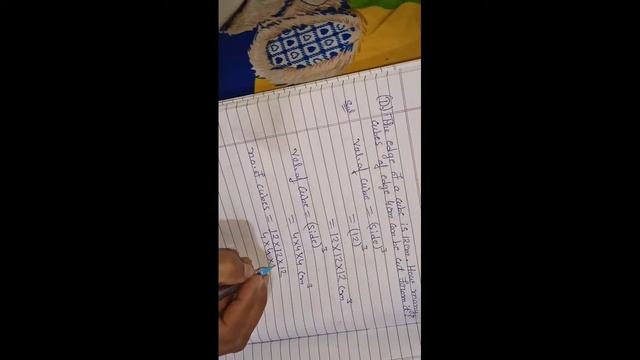 (D) The edge of a cube is 12cm. How many
cubes of edge 4cm can be cut from it?
Sol vol. of cube = (side)³
= (12)³
= 12×12×12 cm³
vol. of cube = (side)³
= 4×4×4 cm³
no. of cubes = 12×12×12
4×4×4